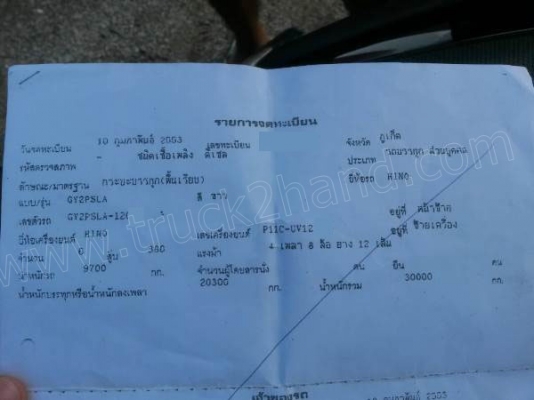 รายการจดทะเบียน
วันจดทะเบียน 10 กุมภาพันธ์ 2553 เลขทะเบียน จังหวัด ภูเก็ต
รหัสตรวจสภาพ - ชนิดเชื้อเพลิง ดีเซล ประเภท รถบรรทุก ส่วนบุคคล
ลักษณะ/มาตรฐาน กระบะบรรทุก(พื้นเรียบ) ยี่ห้อรถ HINO
แบบ/รุ่น GY2PSLA สี ขาว
เลขตัวรถ GY2PSLA-120 อยู่ที่ คัสซีซ้าย
ยี่ห้อเครื่องยนต์ HINO เลขเครื่องยนต์ P11C-UV12 อยู่ที่ ซ้ายเครื่อง
จำนวน 6 สูบ 380 แรงม้า 4 เพลา 8 ล้อ ยาง 12 เส้น
น้ำหนักรถ 9700 กก. จำนวนผู้โดยสารนั่ง คน ยืน คน
น้ำหนักบรรทุกหรือน้ำหนักลงเพลา 20300 กก. น้ำหนักรวม 30000 กก.
เจ้าของรถ
กุมภาพันธ์ 2553
www.truck2hand.com